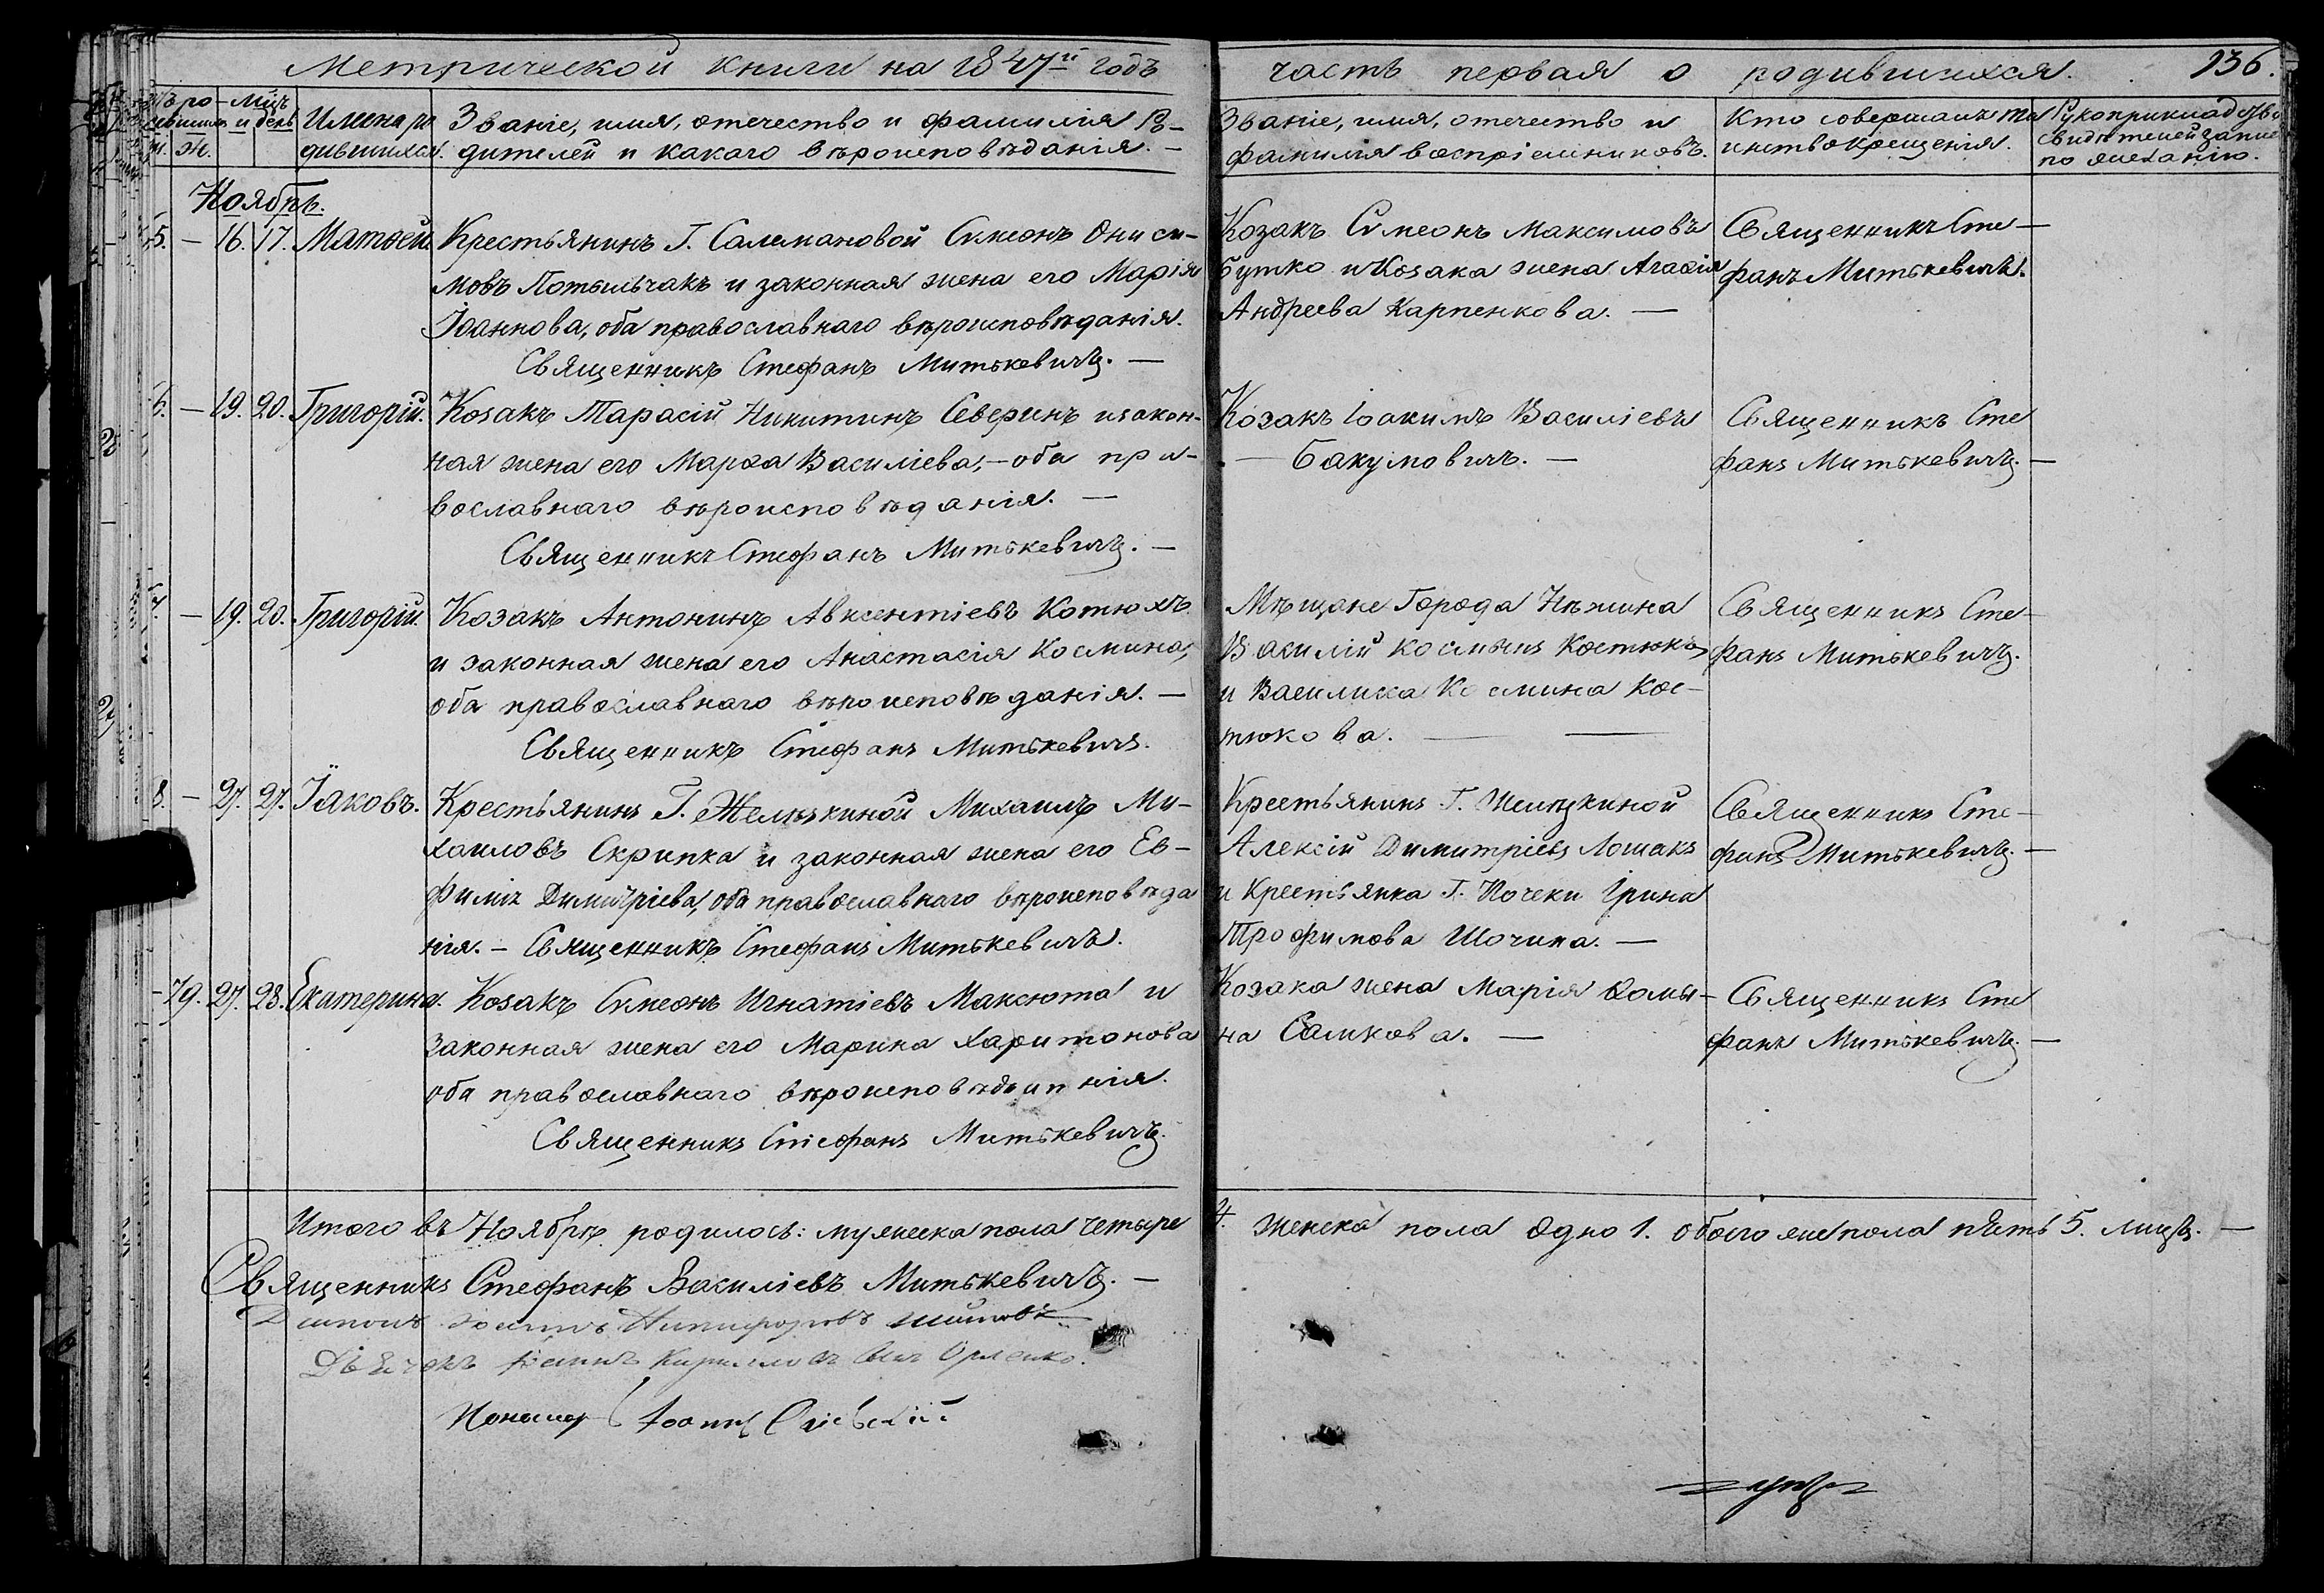 Метрической книги на 1847й годъ
часть первая о родившихся. 136.
Имена ро-
дившихся.
Званіе, имя, отечество и фамилія Ро-
дителей и какаго вѣроисповѣданія. —
Званіе, имя, отечество и
фамилія воспріемниковъ.
Кто совершалъ та
инство крещенія.
Рукоприкладство
свидѣтелей записи
по желанію.
Ноябрь.
5. — 16. 17. Матѳей.
Крестьянинъ Г. Саломановой Сѵмеонъ Ониси-
мовъ Потыльчакъ и законная жена его Марія
Іоаннова, оба православнаго вѣроисповѣданія.
Священникъ Стефанъ Митькевичъ. —
Козакъ Сѵмеонъ Максимовъ
Бутко и Козака жена Агафія
Андреева Карпенкова. —
Священникъ Сте-
фанъ Митькевичъ.
6. — 19. 20. Григорій.
Козакъ Тарасій Никитинъ Северинъ и закон-
ная жена его Марѳа Василіева, — оба пра-
вославнаго вѣроисповѣданія. —
Священникъ Стефанъ Митькевичъ. —
Козакъ Іоакимъ Василіевъ
— Бакумовичъ. —
Священникъ Сте
фанъ Митькевичъ. —
7. — 19. 20. Григорій.
Козакъ Антонинъ Авксентіевъ Котюхъ
и законная жена его Анастасія Космина,
оба православнаго вѣроисповѣданія. —
Священникъ Стефанъ Митькевичъ.
Мѣщане Города Нѣжина
Василій Косминъ Костюкъ
и Василиса Космина Кос-
тюкова. —
Священникъ Сте-
фанъ Митькевичъ.
8. — 27. 27. Іаковъ.
Крестьянинъ Г. Желѣзкиной Михаилъ Ми-
хаиловъ Скрипка и законная жена его Ев-
фимія Димитріева, оба православнаго вѣроисповѣда
нія. — Священникъ Стефанъ Митькевичъ.
Крестьянинъ Г. Желѣзкиной
Алексій Димитріевъ Лошакъ
и Крестьянка Г. Почеки Ірина
Трофимова Шочина. —
Священникъ Сте-
фанъ Митькевичъ. —
— 79. 27. 28. Екатерина.
Козакъ Сѵмеонъ Игнатіевъ Максюта и
законная жена его Марина Харитонова
оба православнаго вѣроисповѣданія.
Священникъ Стефанъ Митькевичъ.
Козака жена Марія Ѳоми-
на Самкова. —
Священникъ Сте
фанъ Митькевичъ. —
Итого въ Ноябрѣ родилось: мужеска пола четыре
4. женска пола одно 1. обоего же пола пять 5. лицъ. —
Священникъ Стефанъ Василіевъ Митькевичъ. —
Діаконъ Никифоровъ
Дьячекъ Кирилловъ сынъ Орленко.
Пономарь Іоаннъ